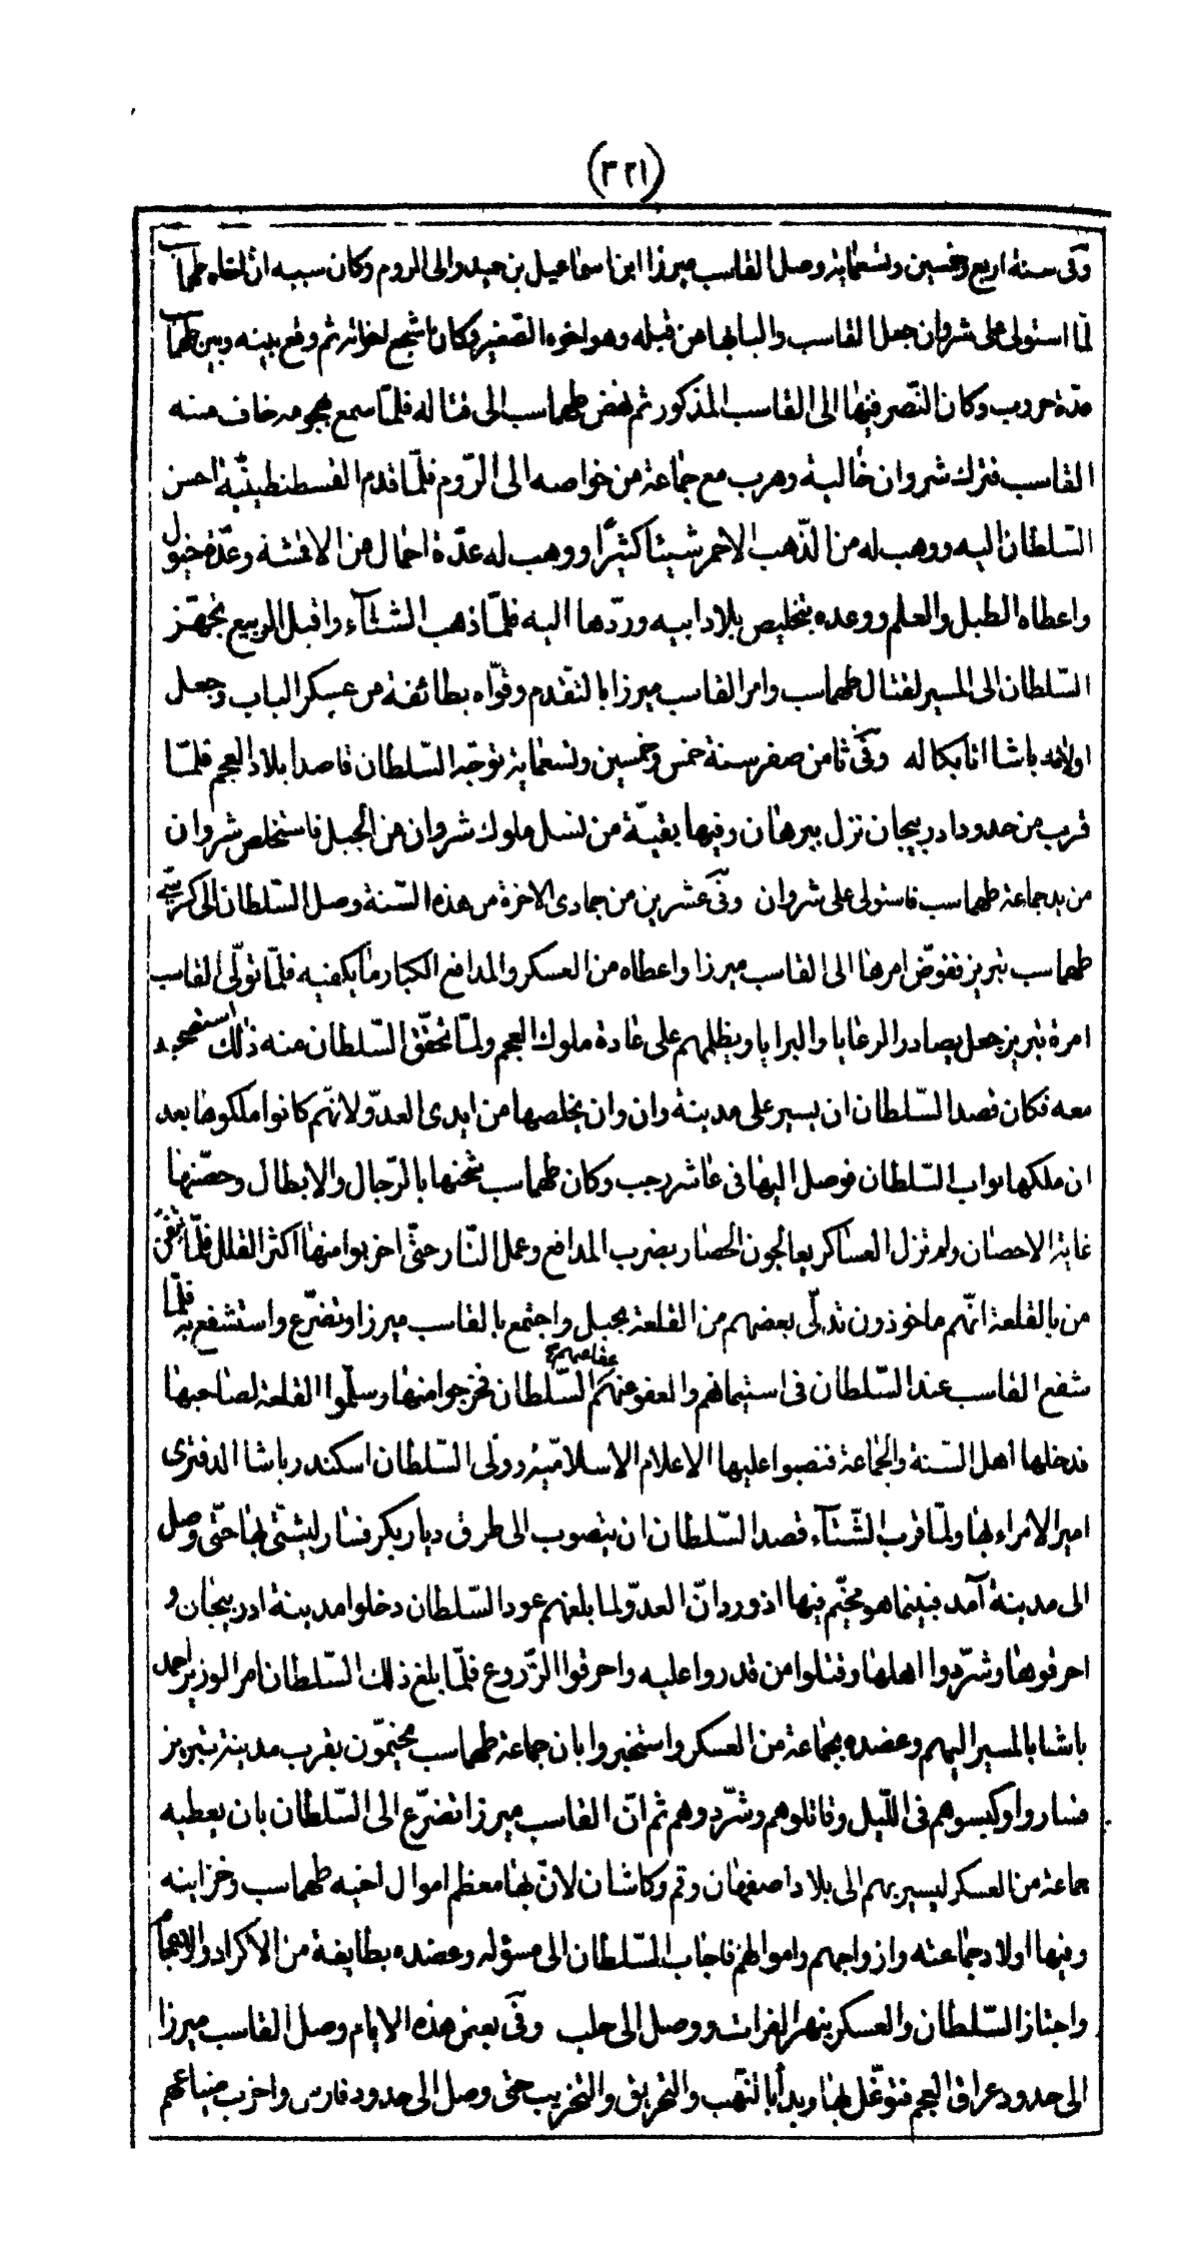 (٣٢١)
وفى سنة اربع وخمسين وتسعمائة وصل القاسب ميرزا ابن اسماعيل بن حيدر الى الروم وكان سببه ان اخاه طهماسب
لما استولى على شروان جعل القاسب واليا بها من قبله وهو اخوه الصغير وكان اشجع اخوته ثم وقع بينه وبين طهماسب
مدة حروب وكان النصر فيها الى القاسب المذكور ثم نهض طهماسب الى قتاله فلما سمع هجومه خاف منه
القاسب فترك شروان خالية وهرب مع جماعة من خواصه الى الروم فلما قدم القسطنطينية احسن
السلطان اليه ووهب له من الذهب الاحمر شيئا كثيرا ووهب له عدة احمال من الاقمشة وعدة خيول
واعطاه الطبل والعلم ووعده بتخليص بلاد ابيه وردها اليه فلما ذهب الشتآء واقبل الربيع تجهز
السلطان الى المسير لقتال طهماسب وامر القاسب ميرزا بالتقدم وقواه بطائفة من عسكر الباب وجعل
اولامه باشا اتابكا له وفى ثامن صفر سنة خمس وخمسين وتسعمائة توجه السلطان قاصدا بلاد العجم فلما
قرب من حدود ادربيجان نزل ببرهان وفيها بقية من نسل ملوك شروان من الجبل فاستخلص شروان
من يد جماعة طهماسب فاستولى على شروان وفى عشرين من جمادى الاخرة من هذه السنة وصل السلطان الى كرسى
طهماسب تبريز ففوض امرها الى القاسب ميرزا واعطاه من العسكر والمدافع الكبار ما يكفيه فلما تولى القاسب
امرة تبريز جعل يصادر الرعايا والبرايا ويظلمهم على عادة ملوك العجم ولما تحقق السلطان منه ذلك استصحبه
معه فكان قصد السلطان ان يسير على مدينة وان وان يخلصها من ايدى العدو لانهم كانوا ملكوها بعد
ان ملكها نواب السلطان فوصل اليها فى عاشر رجب وكان طهماسب شحنها بالرجال والابطال وحصنها
غاية الاحصان ولم تزل العساكر يعالجون الحصار بضرب المدافع وعمل النار حتى اخربوا منها اكثر القلل فلما تيقن
من بالقلعة انهم ماخوذون تدلى بعضهم من القلعة بحبل واجتمع بالقاسب ميرزا وتضرع واستشفع به فلما
شفع القاسب عند السلطان فى استيمانهم والعفو عنهم عفا عنهم السلطان فخرجوا منها وسلموا القلعة لصاحبها
فدخلها اهل السنة والجماعة فنصبوا عليها الاعلام الاسلامية وولى السلطان اسكندر باشا الدفترى
امير الامراء بها ولما قرب الشتآء قصد السلطان ان يتصوب الى طرق ديار بكر فسار ليشتى بها حتى وصل
الى مدينة آمد فبينما هو مخيم فيها اذ ورد ان العدو لما بلغهم عود السلطان دخلوا مدينة ادربيجان و
احرقوها وشردوا اهلها وقتلوا من قدروا عليه واحرقوا الزروع فلما بلغ ذلك السلطان امر الوزير احمد
باشا بالمسير اليهم وعضده بجماعة من العسكر واستخبروا بان جماعة طهماسب مخيمون بقرب مدينة تبريز
فساروا وكبسوهم فى الليل وقاتلوهم وشردوهم ثم ان القاسب ميرزا تضرع الى السلطان بان يعطيه
جماعة من العسكر ليسير بهم الى بلاد اصفهان وقم وكاشان لان بها معظم اموال اخيه طهماسب وخزاينه
وفيها اولاد جماعته وازواجهم واموالهم فاجاب السلطان الى مسؤله وعضده بطايفة من الاكراد والاعجام
واجتاز السلطان والعسكر بنهر الفرات ووصل الى حلب وفى بعض هذه الايام وصل القاسب ميرزا
الى حدود عراق العجم فتوغل بها وبدأ بالنهب والتحريق والتخريب حتى وصل الى حدود فارس واخرب ضياعهم